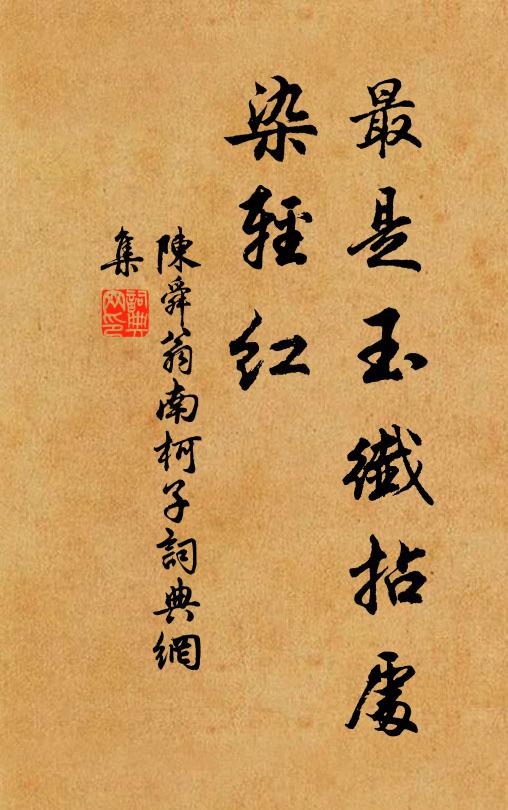 最是玉纖拈處
染輕紅
陳舜翁南柯子詞典網
集
詞典
网印